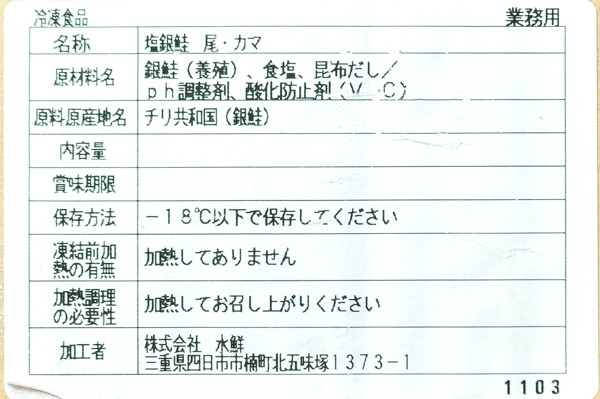 冷凍食品 業務用
名称 塩銀鮭 尾・カマ
原材料名 銀鮭(養殖)、食塩、昆布だし/
ph調整剤、酸化防止剤(V.C)
原料原産地名 チリ共和国(銀鮭)
内容量
賞味期限
保存方法 -18℃以下で保存してください
凍結前加
熱の有無 加熱してありません
加熱調理
の必要性 加熱してお召し上がりください
加工者 株式会社 水鮮
三重県四日市市楠町北五味塚1373-1
1103